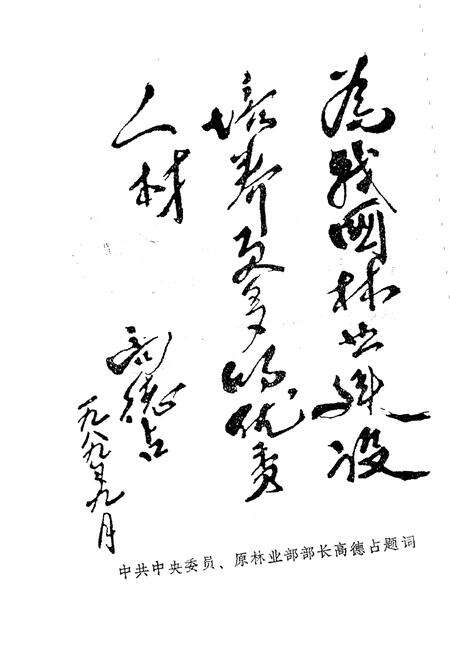 為我国林业建设
培养更多的优秀
人材
高德占
一九八九年九月
中共中央委员、原林业部部长高德占题词